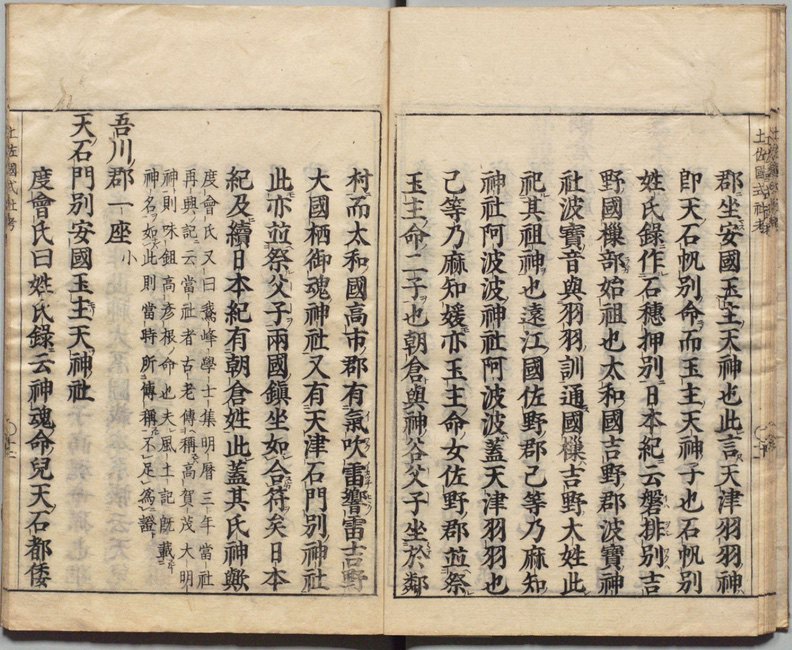 郡坐安國玉主天神也此言天津羽羽神
卽天石帆別命而玉主天神子也石帆別
姓氏錄作石穗押別日本紀云磐排別吉
野國樔部始祖也太和國吉野郡波寶神
社波寶音與羽羽訓通國樔吉野大姓此
祀其祖神也遠江國佐野郡己等乃麻知
神社阿波波神社阿波波蓋天津羽羽也
己等乃麻知媛亦玉主命女佐野郡竝祭
玉主命二子也朝倉與神谷父子坐於鄰
村而太和國高市郡有氣吹雷響雷吉野
大國栖御魂神社又有天津石門別神社
此亦竝祭父子兩國鎭坐如合符矣日本
紀及續日本紀有朝倉姓此蓋其氏神歟
度會氏又曰鵞峰學士集明曆三年當社
再興記云當社者古老傳稱高賀茂大明
神則味鉏高彥根命也夫風土記旣載
神名如此則當時所傳稱不足爲證
吾川郡一座 小
天石門別安國玉主天神社
度會氏曰姓氏錄云神魂命兒天石都倭
土佐國式社考